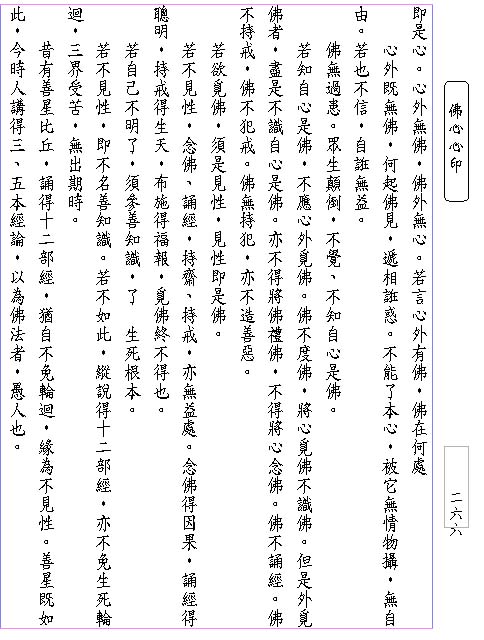 佛心心印
即是心。心外無佛，佛外無心。若言心外有佛，佛在何處
心外既無佛，何起佛見，遞相誑惑。不能了本心，被它無情物攝，無自
由。若也不信，自誑無益。
佛無過患。眾生顛倒，不覺、不知自心是佛。
若知自心是佛，不應心外覓佛。佛不度佛，將心覓佛不識佛。但是外覓
佛者，盡是不識自心是佛。亦不得將佛禮佛，不得將心念佛。佛不誦經。佛
不持戒，佛不犯戒。佛無持犯，亦不造善惡。
若欲覓佛，須是見性，見性即是佛。
若不見性，念佛、誦經，持齋、持戒，亦無益處。念佛得因果，誦經得
聰明，持戒得生天，布施得福報，覓佛終不得也。
若自己不明了，須參善知識，了 生死根本。
若不見性，即不名善知識。若不如此，縱說得十二部經，亦不免生死輪
迴，三界受苦，無出期時。
昔有善星比丘，誦得十二部經，猶自不免輪迴，緣為不見性。善星既如
此，今時人講得三、五本經論，以為佛法者，愚人也。
二六六